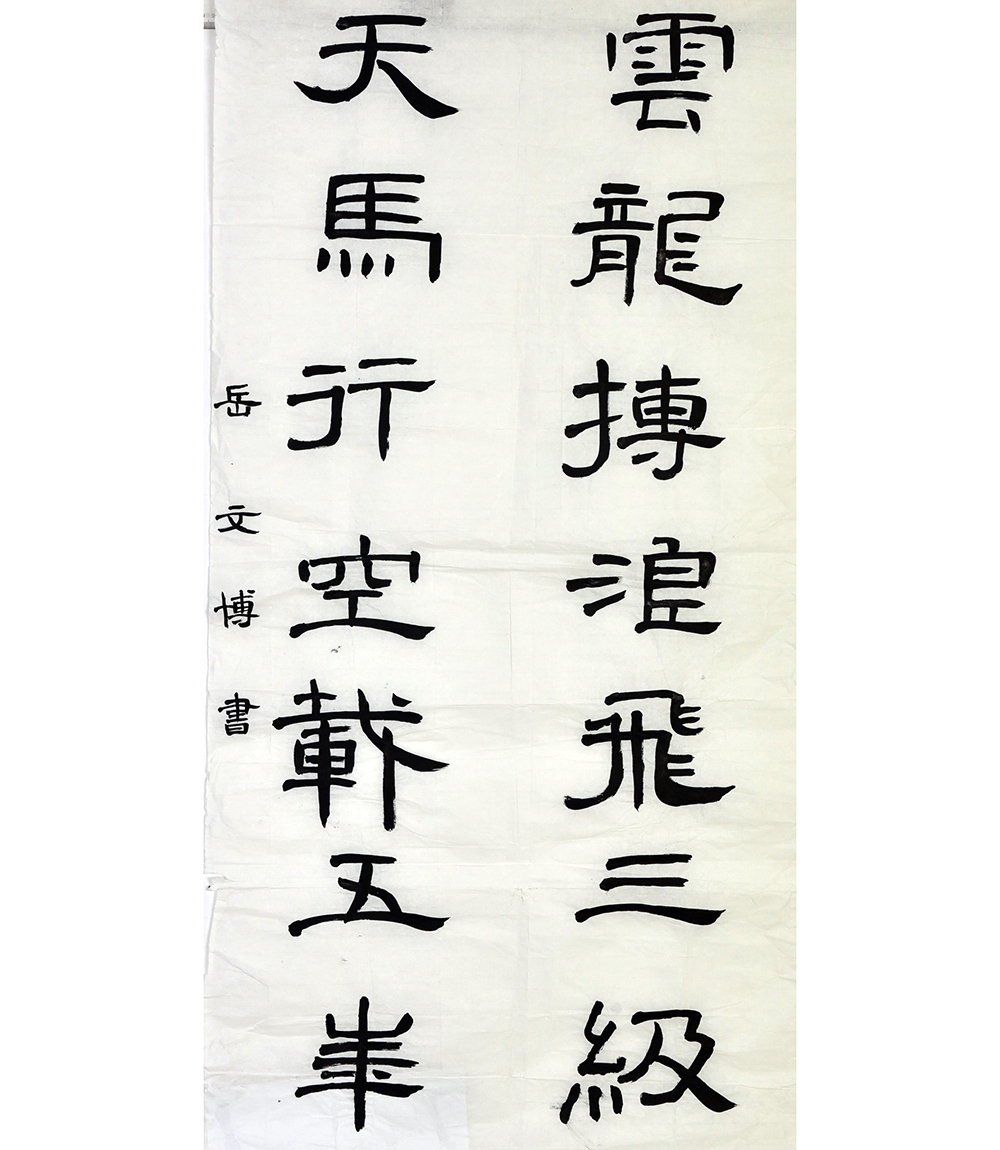 雲龍搏浪飛三級
天馬行空載五
岳文博書